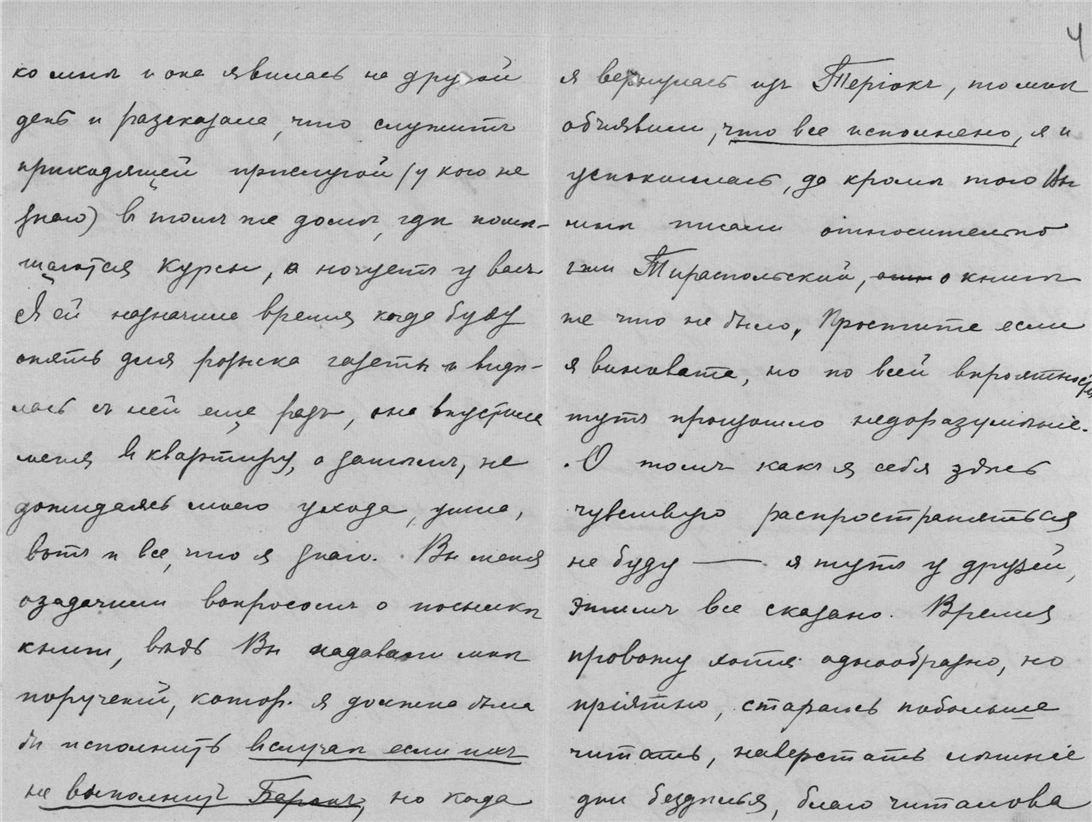 ко мнѣ и она явилась на другой
день и разсказала, что служитъ
приходящей прислугой (у кого не
знаю) въ томъ же домѣ, гдѣ помѣ-
щаются курсы, а ночуетъ у васъ
Я ей назначила время когда буду
опять для розыска газеты и видѣ-
лась съ ней еще разъ, она впустила
меня въ квартиру, а затѣмъ, не
дожидаясь моего ухода, ушла,
вотъ и все, что я знаю. Вы меня
озадачили вопросомъ о посылкѣ
книги, вѣдь Вы надавали мнѣ
порученій, котор. я должна была
бы исполнить въ случаѣ если ихъ
не выполнитъ но когда
4
я вернулась изъ Теріокъ, то мнѣ
объявили, что все исполнено, я и
успокоилась, да кромѣ того Вы
мнѣ писали относительно
Тираспольский, о книгѣ
же что не было, Простите если
я виновата, но по всей вѣроятности
тутъ произошло недоразумѣніе.
О томъ какъ я себя здѣсь
чувствую распространяться
не буду — я тутъ у друзей,
этимъ все сказано. Время
провожу хотя однообразно, но
пріятно, стараюсь побольше
читать, наверстать лѣтніе
дни бездѣлья, благо читальня